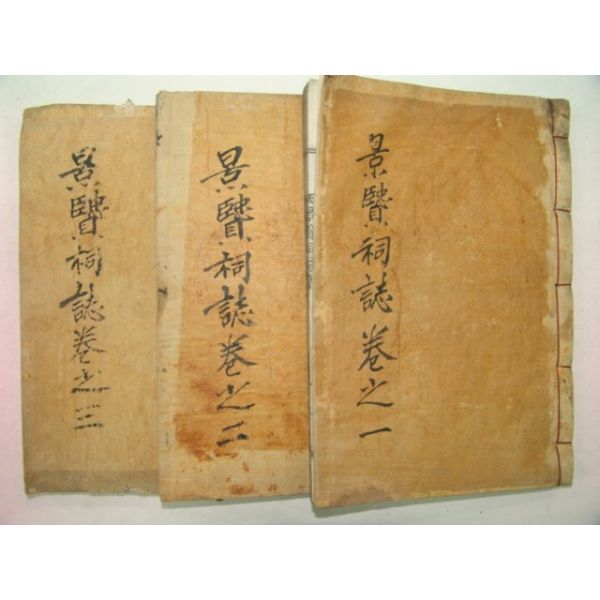 景賢祠誌卷之一
景賢祠誌卷之二
景賢祠誌卷之三